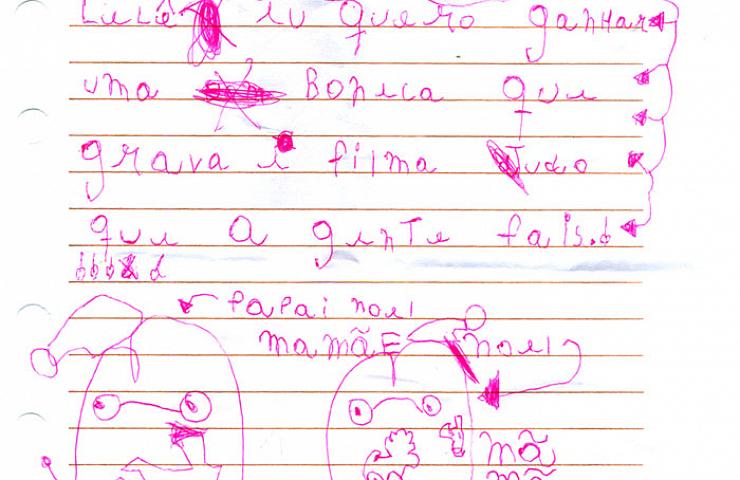 LILÊ EU QUERO GANHAR
UMA BONECA QUE
GRAVA I FILMA TUDO
QUE A GENTE FAIS.
PAPAI NOEL
MAMÃE NOEL
MÃ
MÃ